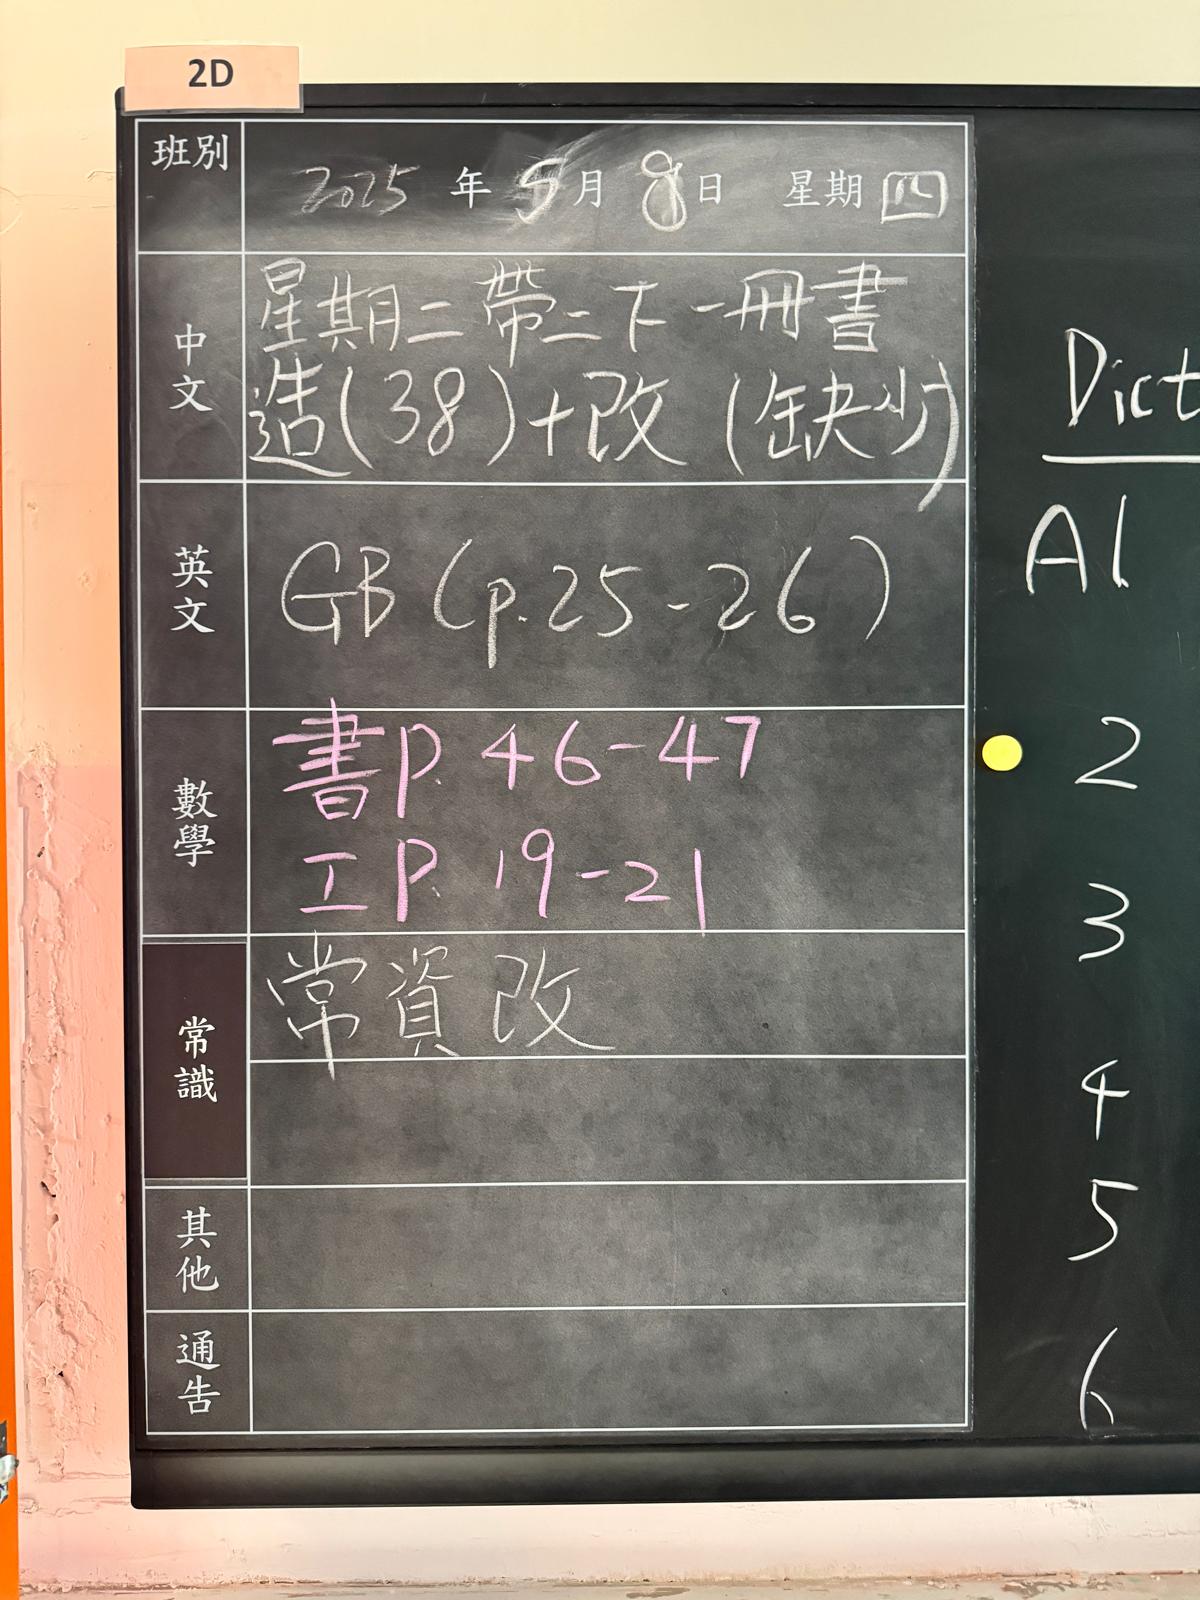 2D
班別
2025 年 5 月 8 日 星期 四
中文
星期二帶二下一冊書
造(38)+改(缺少)
英文
GB (p.25-26)
數學
書P. 46-47
工P. 19-21
常識
常資改
其他
通告
Dict
A1
2
3
4
5